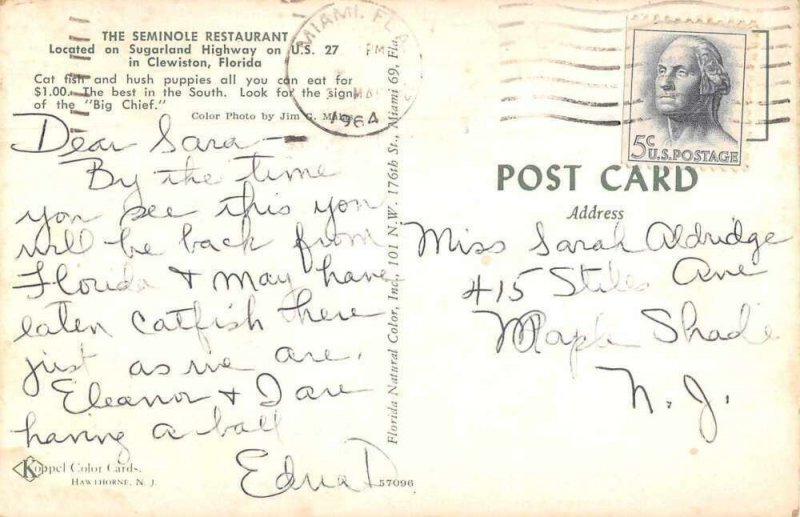 THE SEMINOLE RESTAURANT
Located on Sugarland Highway on U.S. 27
in Clewiston, Florida
Cat fish and hush puppies all you can eat for
$1.00. The best in the South. Look for the sign
of the "Big Chief."
Color Photo by Jim
MIAMI, FLA.
PM
1964
5c
U.S. POSTAGE
POST CARD
Address
Dear Sara —
By the time
you see this you
will be back from
Florida & may have
eaten catfish here
just as we are.
Eleanor & I are
having a ball
Edna D
Miss Sarah Aldridge
415 Stiles Ave
Maple Shade
N. J.
Florida Natural Color, Inc., 101 N.W. 176th St., Miami 69, Fla.
K
Koppel Color Cards.
HAWTHORNE, N. J.
57096